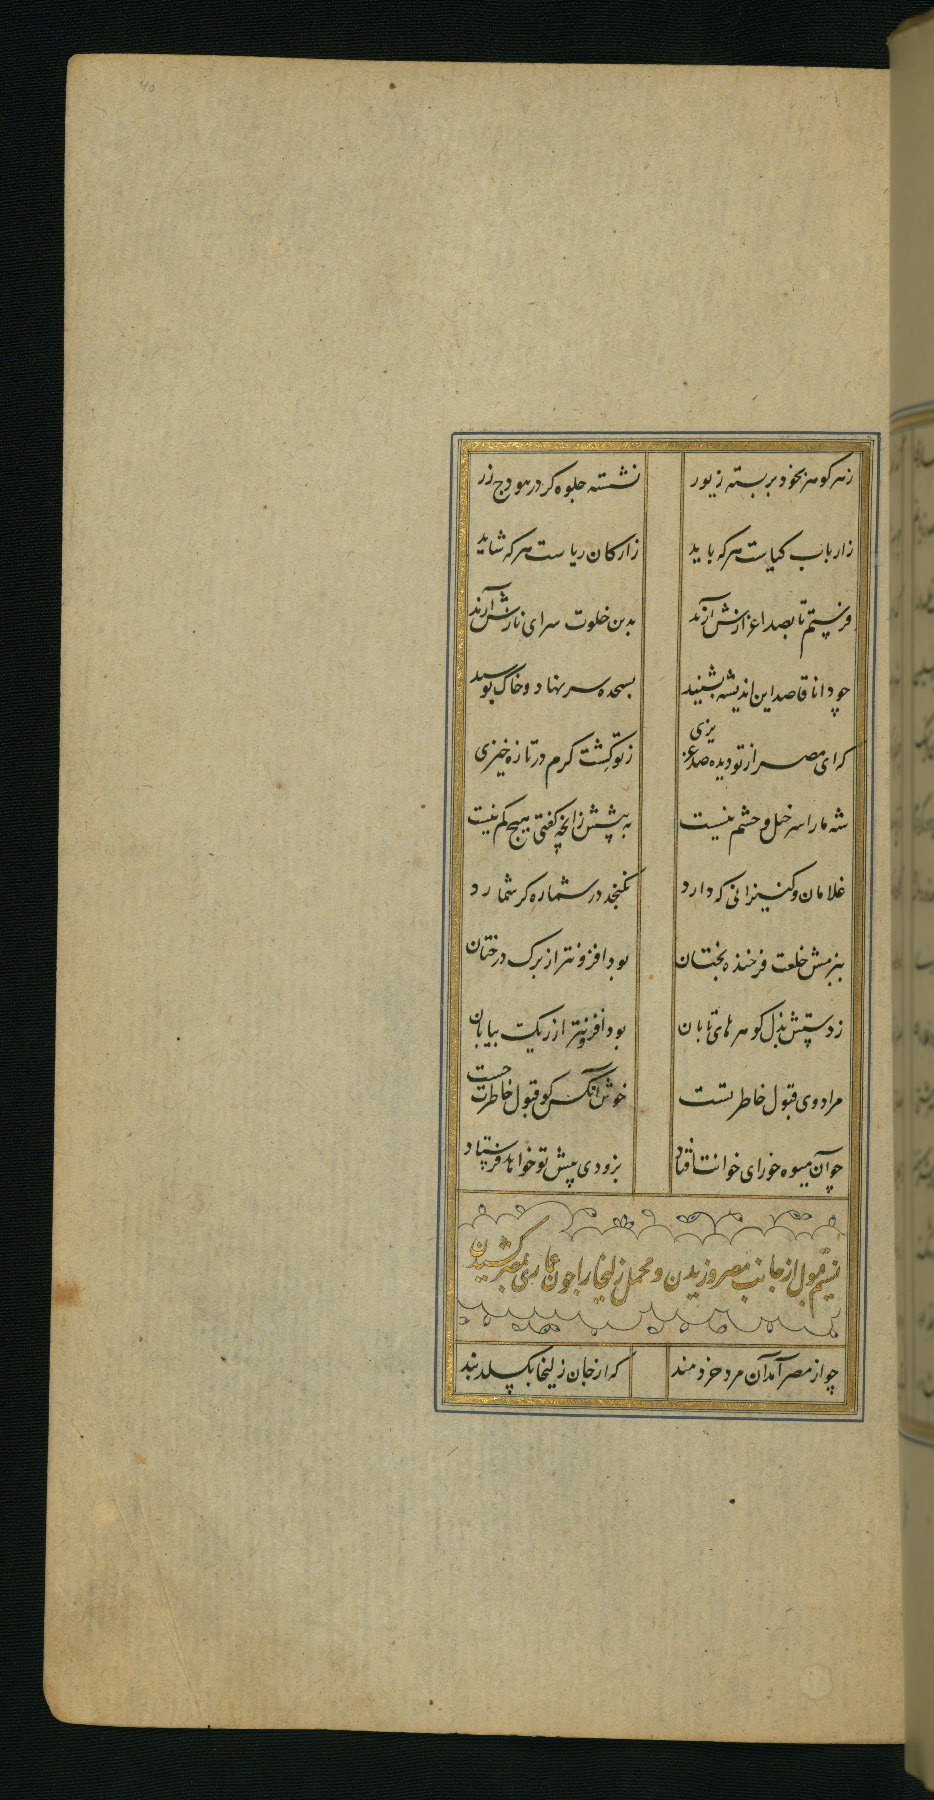 زهر گوهر بخود بر بسته زیور نشسته جلوه گر در هودج زر
ز ارباب کیاست هر که باید ز ارکان ریاست هر که شاید
فرستم تا بصد اعزازش آرند بدین خلوت سرای نازش آرند
چو دانا قاصد این اندیشه بشنید بسجده سر نهاد و خاک بوسید
که ای مصر از تو دیده صد عزیزی ز تو کشت کرم در تازه خیزی
شه ما را سر خیل و حشم نیست به پیشش زانچه گفتی هیچ کم نیست
غلامان و کنیزانی که دارد نگنجد در شماره گر شمارد
ببزمش خلعت فرخنده بختان بود افزونتر از برگ درختان
ز دستش بذل گوهرهای تابان بود افزونتر از ریگ بیابان
مراد وی قبول خاطر تست خوش آنکس کو قبول خاطرت جست
چو آن میوه خورای خوانت افتاد بزودی پیش تو خواهد فرستاد
نسیم قبول از جانب مصر وزیدن و محمل زلیخا را چون عماری بمصر کشیدن
چو از مصر آمد آن مرد خردمند که از جان زلیخا بگسلد بند